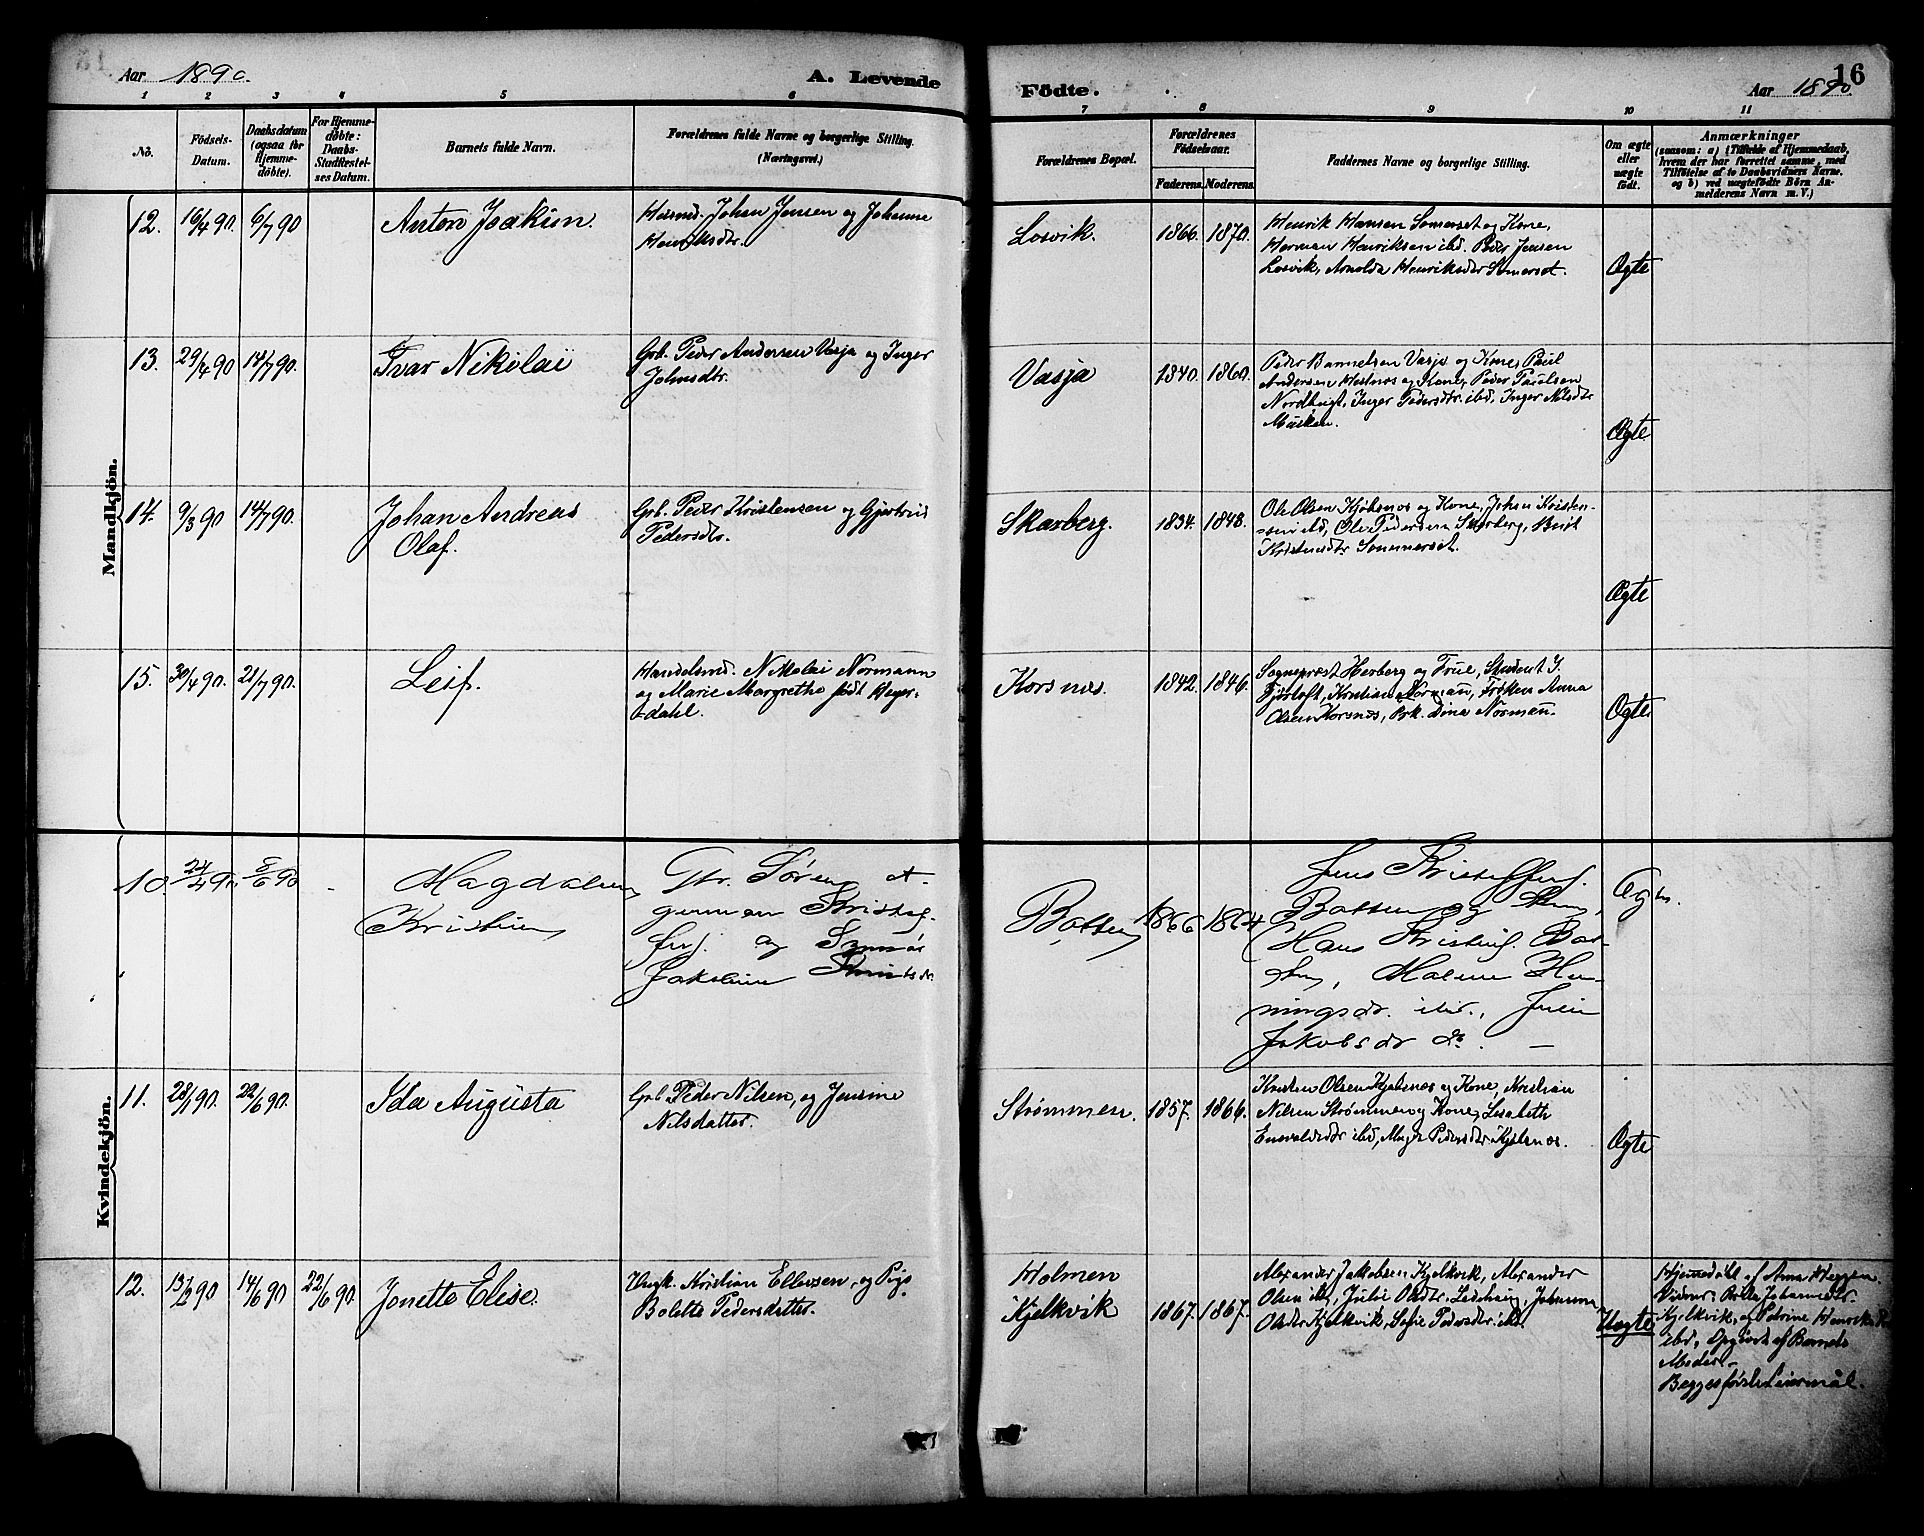 Aar 1890.
A. Levende
Födte.
Aar 1890
16
1 2 3 4 5 6 7 8 9 10 11
No.
Födsels-
Datum.
Daabsdatum
(ogsaa for
Hjemme-
döbte).
For Hjemme-
döbte:
Daabs-
Stadfæstel-
ses Datum.
Barnets fulde Navn.
Forældrenes fulde Navne og borgerlige Stilling.
(Næringsvei.)
Forældrenes Bopæl.
Forældrenes
Födselsaar.
Faderens. Moderens.
Faddernes Navne og borgerlige Stilling.
Om ægte
eller
uægte
födt.
Anmærkninger
(saasom: a) i Tilfælde af Hjemmedaab,
hvem der har forrettet samme, med
Tilföielse af to Daabsvidners Navne,
og b) ved uægtefödte Börn An-
melderens Navn m. V.)
Mandkjön.
12.
16/4 90.
6/7 90
Anton Joakim.
Husmd. Johan Jensen og Johanne
Henriksdtr.
Losvik.
1866. 1870.
Henrik Hansen Somerset og Kone,
Herman Henriksen ibd. Peder Jensen
Losvik, Arnolda Henriksdtr Somerset.
Ægte
13.
29/4 90
14/7 90.
Ivar Nikolai
Grb. Peder Andersen Vasja og Inger
Johnsdtr.
Vasja
1840. 1860.
Peder Vasja og Kone, Paul
Andersen Hestnes og Kone, Peder Paulsen
Inger Pedersdtr. ibd, Inger Nilsdtr
Musken.
Ægte
14.
9/3 90
14/7 90.
Johan Andreas
Olaf.
Grb. Peder Kristensen og Gjertrud
Pedersdtr.
Skarberg.
1834. 1848.
Ole Olsen Kjøbsnes og Kone, Johan Kristen-
sen ibd, Ole Pedersen Skarberg, Berit
Kristensdtr Sommerset.
Ægte
15.
30/4 90.
21/7 90.
Leif.
Handelsmd. Nikolai Normann
og Marie Margrethe født Heger-
dahl.
Korsnes.
1842. 1846.
Sogneprest Herberg og Frue, Student J.
Fjørtoft, Kristian Norman, Frøken Anna
Olsen Korsnes, Pk. Dina Norman.
Ægte
Kvindekjön.
10.
24/4 90.
8/6 90
Magdalena
Kristine
Gbr. Søren A-
german Kristof-
fers. og
Jakobine
Botten
1866 1864
Jens Kristoffers.
Botten og
Hans Bot-
ten, Malene He-
ningsdr. ibd.,
Jakobsdr do. —
Ægte.
11.
28/1 90.
22/6 90.
Ida Augusta
Grb Peder Nilsen, og Jensine
Nilsdatter.
Strømmen.
1857. 1866.
Kristen Olsen Kjøbsnes og Kone, Kristian
Nilsen Strømmen og Kone, Lisabeth
Enevoldsdtr ibd, Pedersdtr Kjøbsnes.
Ægte
12.
13/2 90
14/6 90
22/6 90
Jonette Elise.
Ungk. Kristian Ellevsen, og Pige
Bolette Pedersdatter.
Holmen
Kjelkvik
1867. 1867.
Alexander Jakobsen Kjelkvik, Alexander
Olsen ibd, Julie Olsdtr. Johanna
Olsdtr Kjelkvik, Sofie Pedersdtr ibd.
Uægte
Hjemmedøbt af Anna Heggen.
Vidner: Johannesdtr.
Kjelkvik, og Petrine
ibd, Opgivet af Barnets
Moder.
Begges første Leiermål.